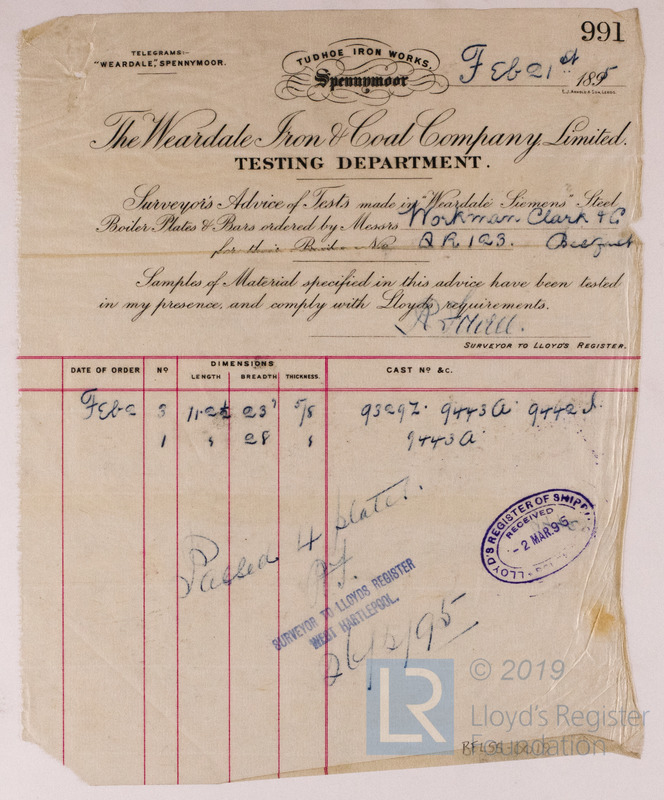 991
TELEGRAMS:-
"WEARDALE", SPENNYMOOR.
TUDHOE IRON WORKS,
Spennymoor
Feb 21st 1895
E.J. ARNOLD & SON, LEEDS.
The Weardale Iron & Coal Company, Limited.
TESTING DEPARTMENT.
Surveyor's Advice of Tests made in "Weardale Siemens" Steel
Boiler Plates & Bars ordered by Messrs Workman Clark & Co
for their Boiler No QR 123. Belfast
Samples of Material specified in this advice have been tested
in my presence, and comply with Lloyds requirements.
SURVEYOR TO LLOYD'S REGISTER.
DATE OF ORDER No DIMENSIONS CAST No &c.
LENGTH BREADTH THICKNESS.
Feb 2 3 11-2½ 23" 5/8 9329Z. 9443A 9442
1 " 28 " 9443A
Passed 4 plates.
SURVEYOR TO LLOYDS REGISTER
WEST HARTLEPOOL.
26/2/95
LLOYD'S REGISTER OF SHIPPI
RECEIVED
- 2 MAR. 95
LR
© 2019
Lloyd's Register
Foundation